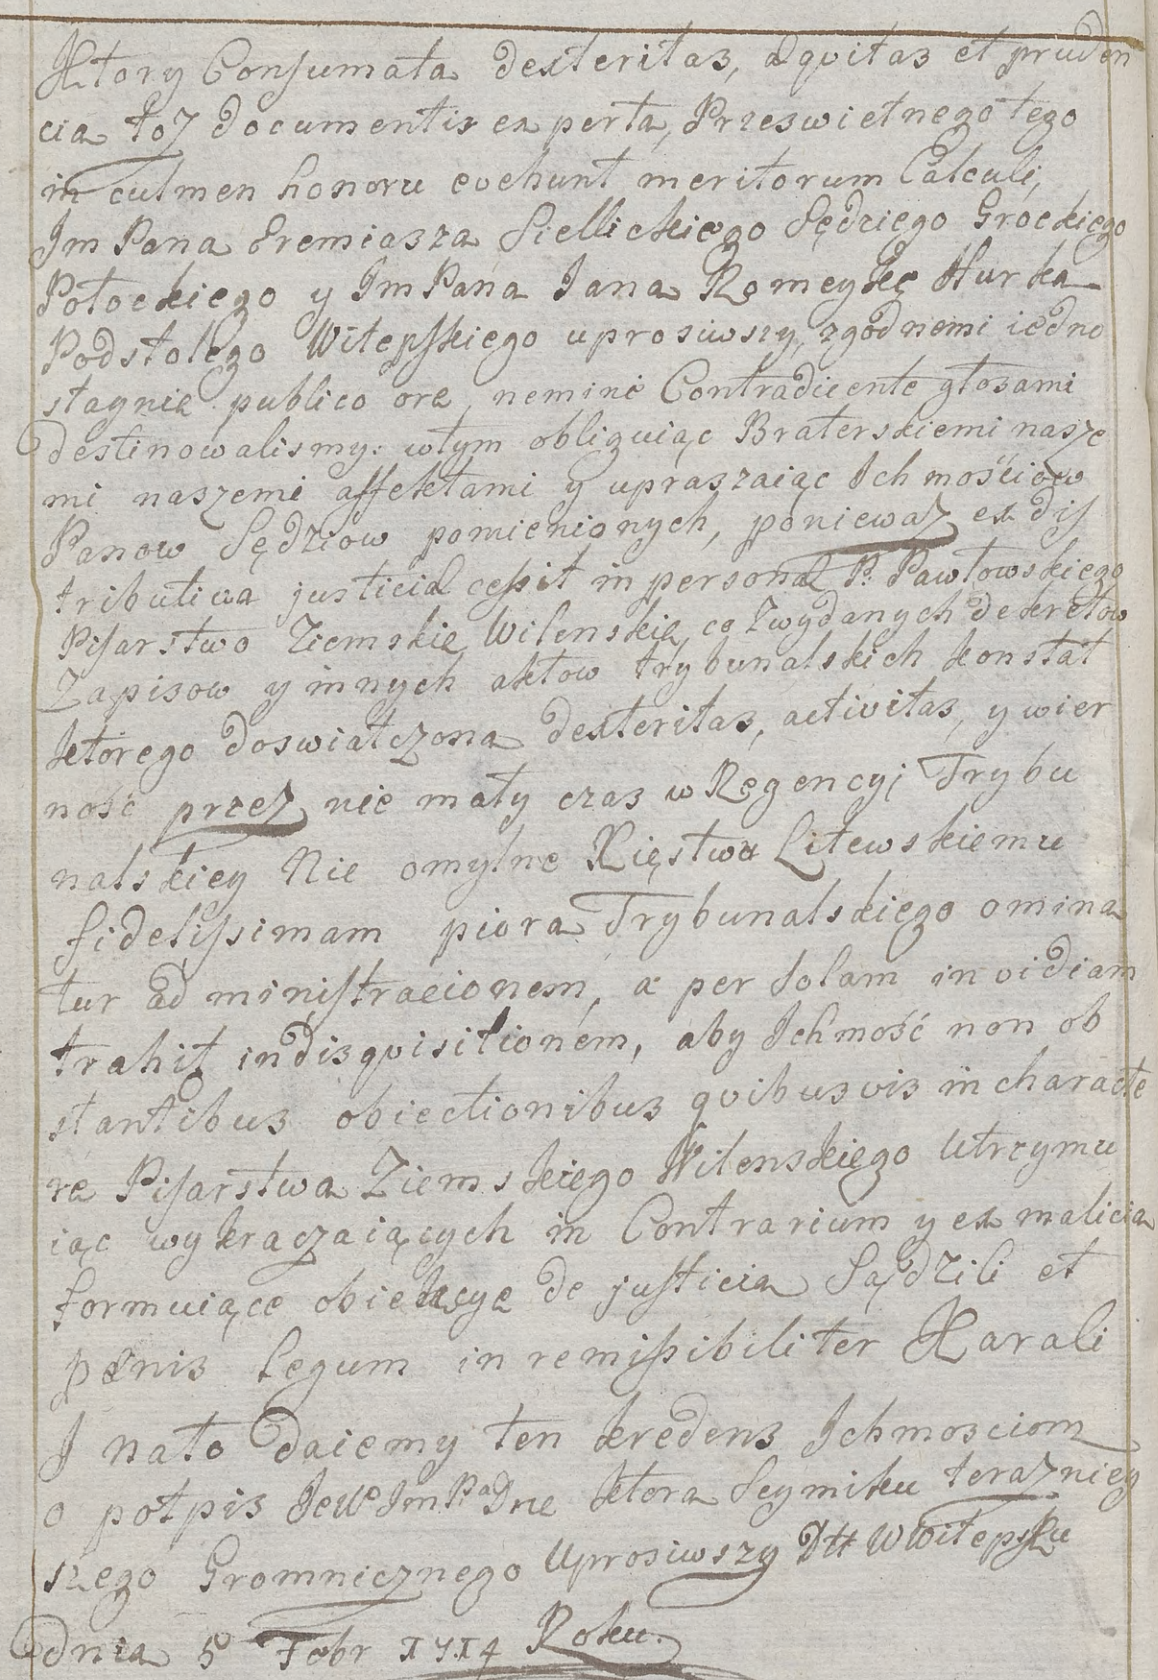 Ktory Consumata dexteritas, æqvitas et pruden
cia toż documentis experta, Przeswietnego tego
in culmen honoru evehunt meritorum Calculi,
Jm Pana Eremiasza Siellickiego Sędziego Grockiego
Połockiego y Jm Pana Jana Romeykę Hurka
Podstolego Witepskiego uprosiwszy, zgodnemi iedno
staynie publico ore, nemine Contradicente głosami
destinowalismy: wtym obliguiąc Braterskiemi nasze
mi naszemi affektami y upraszaiąc Ich mościow
Panow Sędziow pomienionych, ponieważ ex dis
tributiva justicia cessit in persona P. Pawłowskiego
Pisarstwo Ziemskie Wilenskie, co z wydanych dekretow
Zapisow y innych aktow trybunalskich konstat
ktorego doswiatczona dexteritas, activitas, y wier
ność przez nie mały czas w Regencyi Trybu
nalskiey Nie omylne Xięstwu Litewskiemu
fidelissimam piora Trybunalskiego omina
tur administracionem, a per solam invidiam
trahit in disqvisitionem, aby Ichmość non ob
stantibus obiectionibus qvibusvis in characte
re Pisarstwa Ziemskiego Wilenskiego Utrzymu
iąc wykraczaiących in Contrarium y ex malicia
formuiące obiekcye de justicia Sądzili et
pænis legum inremissibiliter Karali
J nato daiemy ten kredens Ichmosciom
o potpis Jeᵒ Jm Pᵃ Dne ktora Seymiku terazniey
szego Gromnicznego Uprosiwszy Dtt W Witepsku
dnia 5 Febr 1714 Roku.